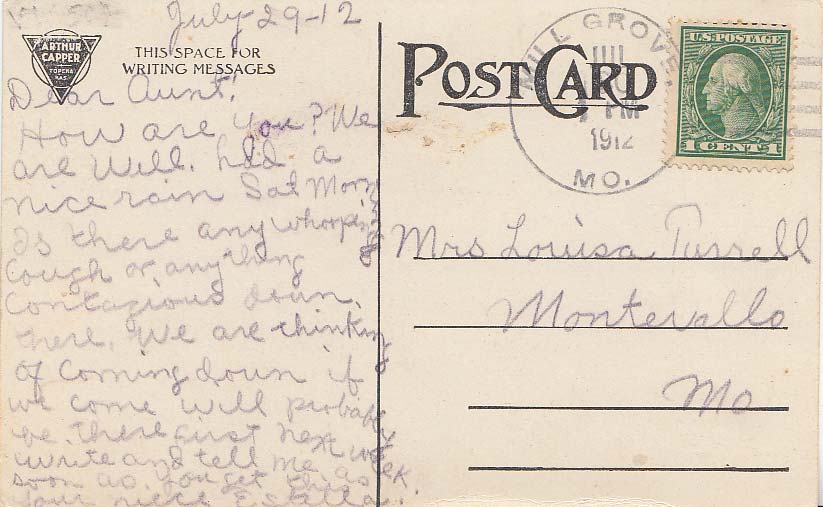 July-29-12
ARTHUR
CAPPER
TOPEKA
KAS.
THIS SPACE FOR
WRITING MESSAGES
Dear Aunt!
How are you? We
are Well. had a
nice rain Sat Morn
Is there any whooping
Cough or anything
Contagious down
there. We are thinking
of Coming down if
we come will probably
be there first next week
write and tell me
soon as you get this. as
your niece Estella.
POST CARD
MILL GROVE,
PM
1912
MO.
U.S. POSTAGE
1 CENT 1
Mrs Louisa Turrell
Montevallo
Mo